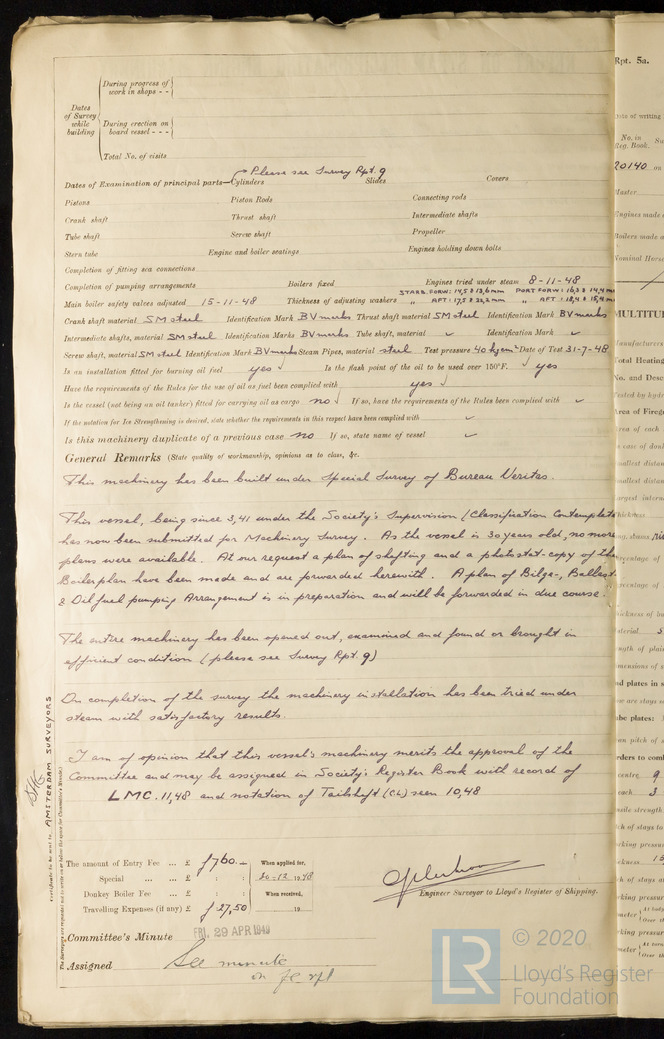 During progress of
work in shops - -
Dates
of Survey
while
building
During erection on
board vessel - - -
Total No. of visits
Please see Survey Rpt. 9
Dates of Examination of principal parts—Cylinders Slides Covers
Pistons Piston Rods Connecting rods
Crank shaft Thrust shaft Intermediate shafts
Tube shaft Screw shaft Propeller
Stern tube Engine and boiler seatings Engines holding down bolts
Completion of fitting sea connections
Completion of pumping arrangements Boilers fixed Engines tried under steam 8-11-48
Main boiler safety valves adjusted 15-11-48 Thickness of adjusting washers
STARB. FORW: PORT FORW:
" AFT: " AFT:
Crank shaft material SM steel Identification Mark BV marks Thrust shaft material SM steel Identification Mark BV marks
Intermediate shafts, material SM steel Identification Marks BV marks Tube shaft, material ✓ Identification Mark ✓
Screw shaft, material SM steel Identification Mark BV marks Steam Pipes, material steel Test pressure 40 kg cm² Date of Test 31-7-48
Is an installation fitted for burning oil fuel yes ✓ Is the flash point of the oil to be used over 150°F. ✓ yes
Have the requirements of the Rules for the use of oil as fuel been complied with yes ✓
Is the vessel (not being an oil tanker) fitted for carrying oil as cargo no ✓ If so, have the requirements of the Rules been complied with ✓
If the notation for Ice Strengthening is desired, state whether the requirements in this respect have been complied with ✓
Is this machinery duplicate of a previous case no If so, state name of vessel ✓
General Remarks (State quality of workmanship, opinions as to class, &c.
This machinery has been built under Special Survey of Bureau Veritas.
This vessel, being since 3,41 under the Society's Supervision (Classification Contemplate
has now been submitted for Machinery Survey. As the vessel is 30 years old, no more
plans were available. At our request a plan of shafting and a photostat-copy of the
Boilerplan have been made and are forwarded herewith. A plan of Bilge-, Ballast
& Oil fuel pumping Arrangement is in preparation and will be forwarded in due course.
The entire machinery has been opened out, examined and found or brought in
efficient condition (please see Survey Rpt. 9)
On completion of the survey the machinery installation has been tried under
steam with satisfactory results.
I am of opinion that this vessel's machinery merits the approval of the
Committee and may be assigned in Society's Register Book with record of
LMC. 11,48 and notation of Tailshaft (CL) seen 10,48
The amount of Entry Fee ... £ ƒ760.— When applied for,
Special ... ... £ : : 20-12 1948
Donkey Boiler Fee ... £ : : When received,
Travelling Expenses (if any) £ ƒ 27,50 19
Engineer Surveyor to Lloyd's Register of Shipping.
Committee's Minute FRI. 29 APR 1949
Assigned See minute
on
Certificate to be sent to AMSTERDAM SURVEYORS
(The Surveyors are requested not to write on or below the space for Committee's Minute.)
Rpt. 5a.
Date of writing
No. in
Reg. Book.
20140 on
Master
Engines made
Boilers made
Nominal Horse
MULTITU
Manufacturers
Total Heating
No. and Desc
Tested by hydr
Area of Fireg
Area of each
LR
© 2020
Lloyd's Register
Foundation